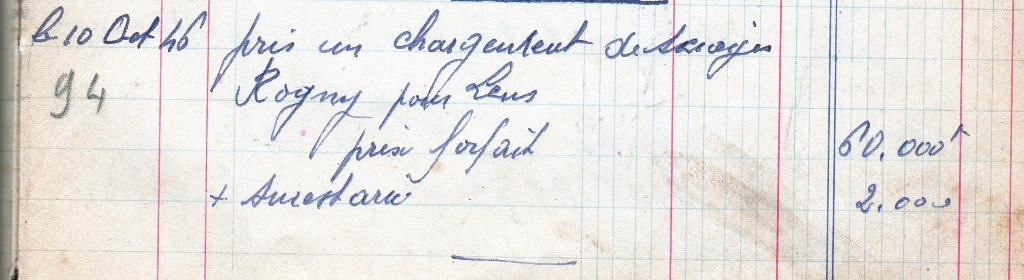 le 10 Oct 46 pris un chargement de
94 Rogny pour Lens
prix forfait 60.000f
+ Surestarie 2.000